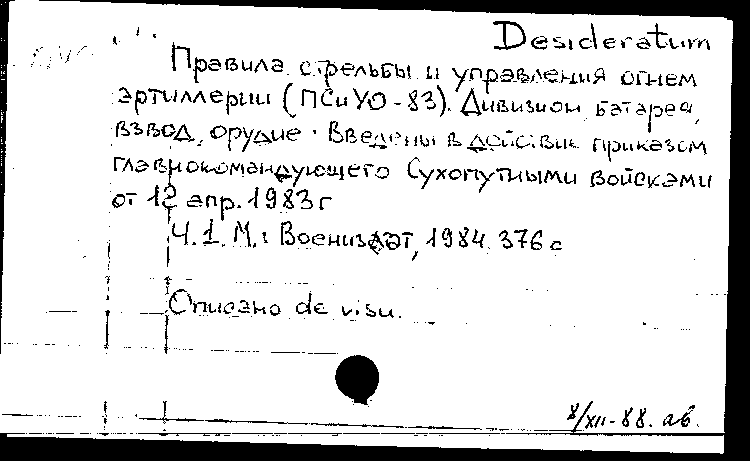 Desideratum
Правила стрельбы и управления огнем
артиллерии (ПСиУО-83). Дивизион, батарея,
взвод, орудие. Введены в действие приказом
главнокомандующего Сухопутными войсками
от 12 апр. 1983 г
Ч. 1. М.: Воениздат, 1984. 376 с
Описано de visu.
8/XII-88. ав.